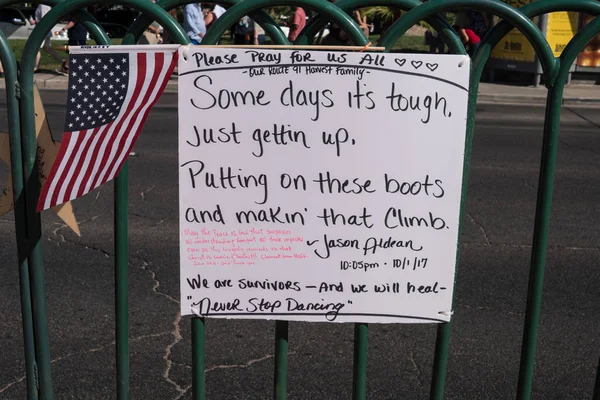 Please Pray for us All ♡♡♡
- Our Route 91 Harvest Family -
Some days it's tough.
Just gettin up.
Putting on these boots
and makin' that Climb.
~ Jason Aldean
10:05pm · 10/1/17
We are survivors - And we will heal -
"Never Stop Dancing"